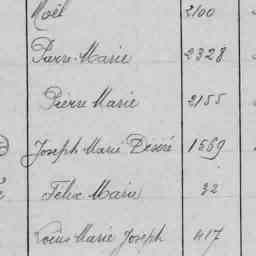 Noël 2100
Pierre Marie 2328
Pierre Marie 2155
Joseph Marie Désiré 1569
Félix Marie 32
Louis Marie Joseph 417